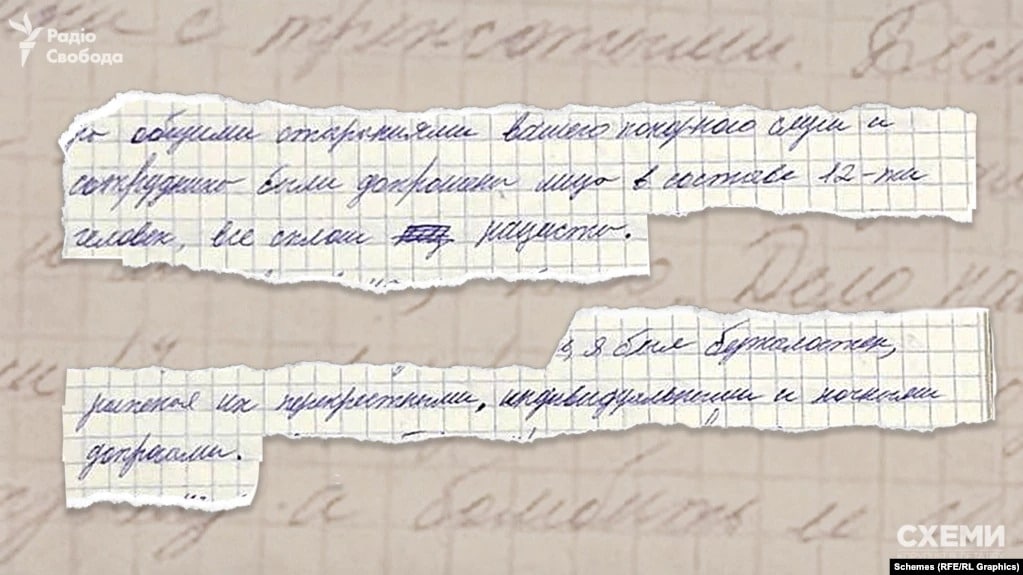 Радіо
Свобода
с
общими стараниями вашего покорного слуги и
сотрудника были допрошены лица в составе 12-ти
человек, все сплош нацисты.
Дело
я был безжалостен,
их перекрестными, индивидуальными и ночными
допросами.
а бомбить и
СХЕМИ
Schemes (RFE/RL Graphics)